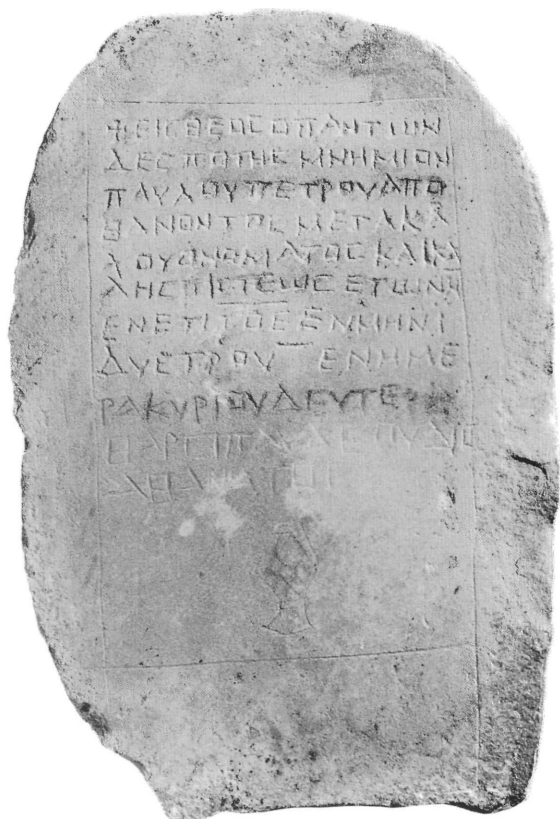 ⳨ ΕΙC ΘΕΟC Ο ΠΑΝΤΩΝ
ΔΕCΠΟΤΗC ΜΝΗΜΙΟΝ
ΠΑΥΛΟΥ ΠΕΤΡΟΥ ΑΠΟ
ΘΑΝΟΝΤΟC ΜΕΤΑ ΚΑ
ΛΟΥ ΟΝΟΜΑΤΟC ΚΑΙ ΚΑ
ΛΗC ΠΙCΤΕΩC ΕΤΩΝ
ΕΝ ΕΤΙ ΤΟΕ ΕΝ ΜΗΝΙ
ΔΥCΤΡΟΥ ΕΝ ΗΜΕ
ΡΑ ΚΥΡΙΟΥ
ΘΑΡCΙ ΟΥΔΙC